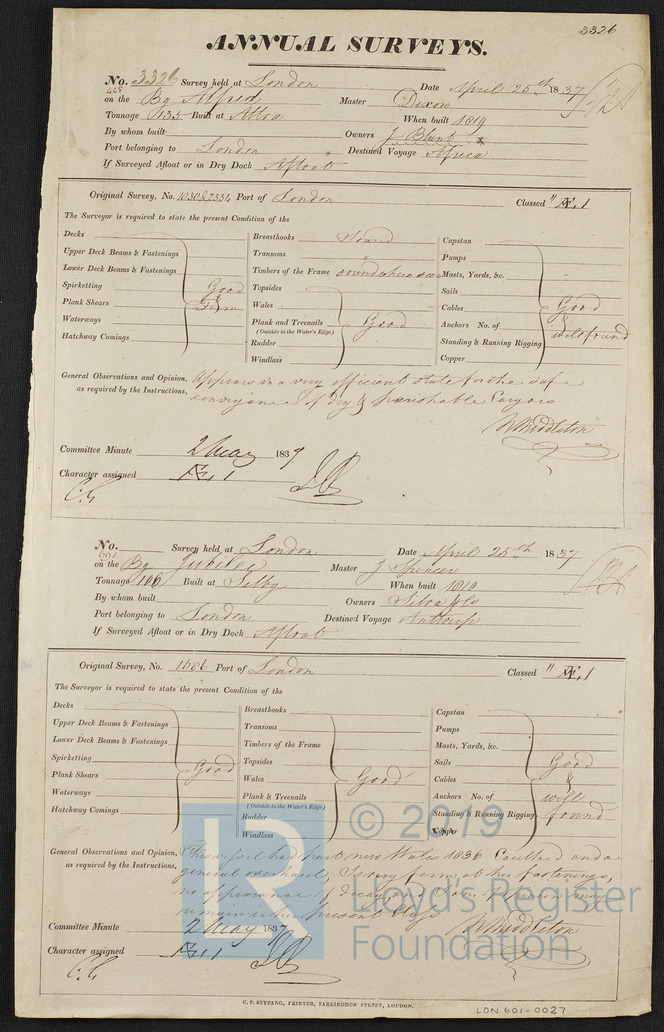 3326
ANNUAL SURVEYS.
No. 3326 Survey held at London Date April 25th 1837
on the Bg Alfred Master Dixon
Tonnage 135 Built at Alloa When built 1819
By whom built Owners J Blunt
Port belonging to London Destined Voyage Africa
If Surveyed Afloat or in Dry Dock Afloat
Original Survey, No. 1030&2331, Port of London Classed " Æ.1
The Surveyor is required to state the present Condition of the
Decks
Upper Deck Beams & Fastenings
Lower Deck Beams & Fastenings
Spirketting
Plank Shears
Waterways
Hatchway Comings
Good
&
Firm
Breasthooks Sound
Transoms "
Timbers of the Frame sound where seen
Topsides
Wales
Plank and Treenails
(Outside to the Water's Edge)
Rudder
Windlass
Good
Capstan
Pumps
Masts, Yards, &c.
Sails
Cables
Anchors No. of
Standing & Running Rigging
Copper
Good
&
well found
General Observations and Opinion, Appears in a very efficient state for the safe
as required by the Instructions, conveyance of Dry & perishable Cargoes
W Middleton
Committee Minute 2 May 1837
Character assigned Æ.1
No. Survey held at London Date April 25th 1837
691
on the Bg Jubilee Master J Spencer
Tonnage 106 Built at Selby When built 1810
By whom built Owners Silva & Co
Port belonging to London Destined Voyage Antwerp
If Surveyed Afloat or in Dry Dock Afloat
Original Survey, No. 1686 Port of London Classed " Æ.1
The Surveyor is required to state the present Condition of the
Decks
Upper Deck Beams & Fastenings
Lower Deck Beams & Fastenings
Spirketting
Plank Shears
Waterways
Hatchway Comings
Good
Breasthooks
Transoms
Timbers of the Frame
Topsides
Wales
Plank & Treenails
(Outside to the Water's Edge)
Rudder
Windlass
Good
Capstan
Pumps
Masts, Yards, &c.
Sails
Cables
Anchors No. of
Standing & Running Rigging
Copper
Good
&
well
found
General Observations and Opinion, This vessel had part new Wales 1836 Caulked and a
as required by the Instructions, general overhaul, Is very firm at her fastenings,
no appearance of decay, and I am of opinion may
remain in her present Class
W Middleton
Committee Minute 2 May 1837
Character assigned Æ.1
© 2019
LR
Lloyd's Register
Foundation
C. F. SEYFANG, PRINTER, FARRINGDON STREET, LONDON.
LON 601-0027